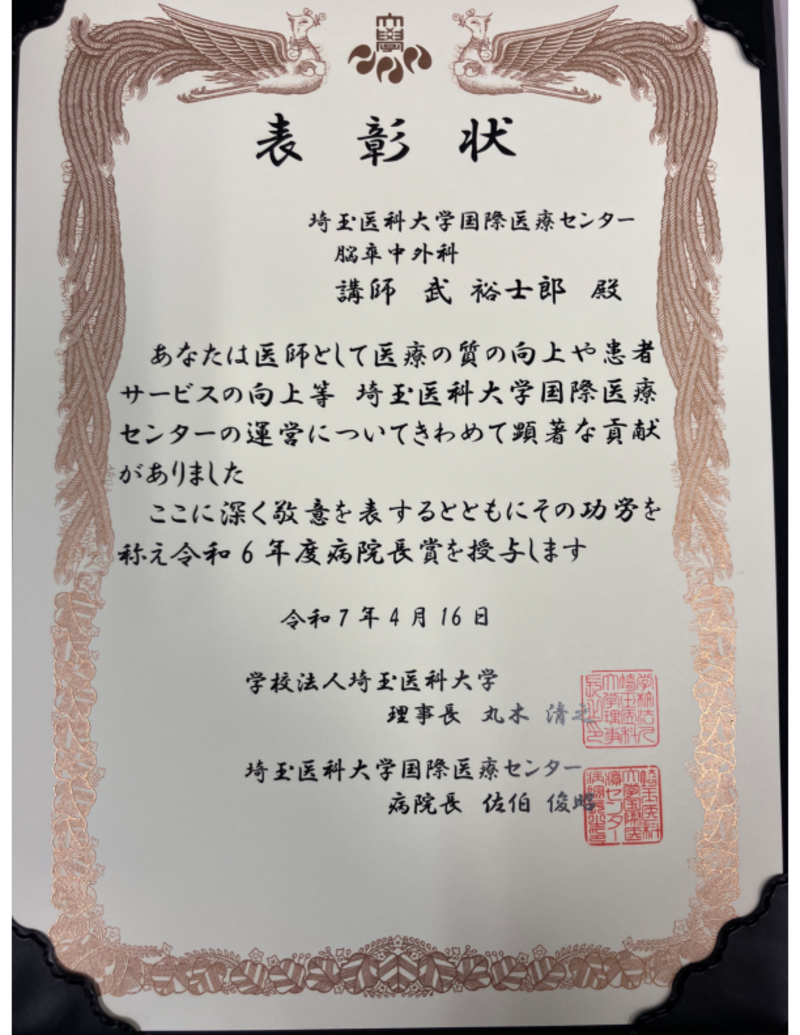 大學
表彰状
埼玉医科大学国際医療センター
脳卒中外科
講師 武 裕士郎 殿
あなたは医師として医療の質の向上や患者
サービスの向上等 埼玉医科大学国際医療
センターの運営についてきわめて顕著な貢献
がありました
ここに深く敬意を表するとともにその功労を
称え令和6年度病院長賞を授与します
令和7年4月16日
学校法人埼玉医科大学
理事長 丸木 清之
埼玉医科大学国際医療センター
病院長 佐伯 俊昭